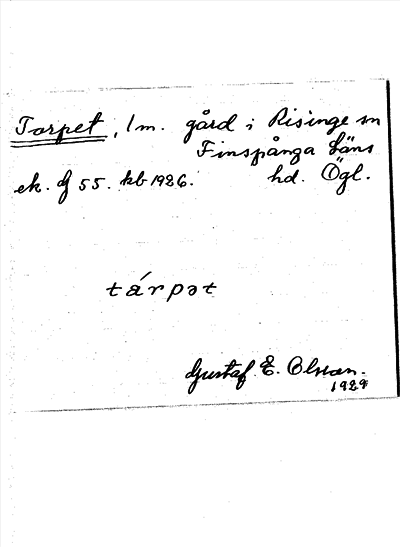 Torpet, 1 m. gård i Risinge sn
Finspånga läns
ek. bl 55. kb 1926. hd. Ögl.
tárpət
Gustaf E. Olsson.
1929